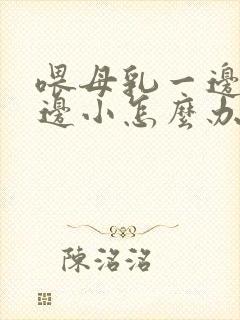 喂母乳一邊
邊小怎麼办
陳洺洺